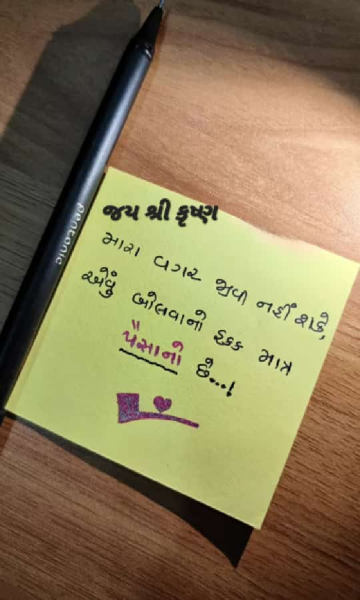 Pentonic
જય શ્રી કૃષ્ણ
મારા વગર જીવી નહીં શકે,
એવું બોલવાનો હક્ક માત્ર
પૈસાનો છે...!